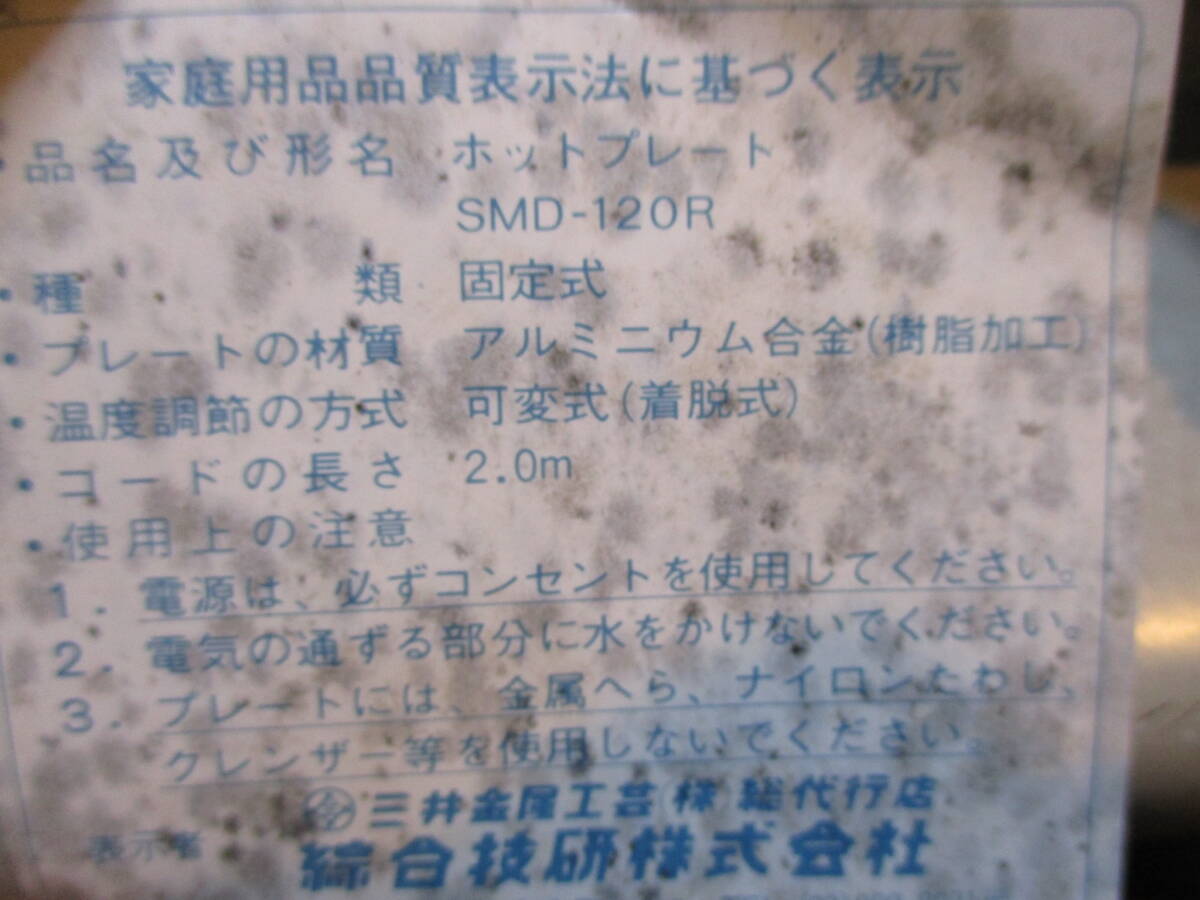 家庭用品品質表示法に基づく表示
・品名及び形名 ホットプレート
SMD-120R
・種類 固定式
・プレートの材質 アルミニウム合金(樹脂加工)
・温度調節の方式 可変式(着脱式)
・コードの長さ 2.0m
・使用上の注意
1. 電源は、必ずコンセントを使用してください。
2. 電気の通ずる部分に水をかけないでください。
3. プレートには、金属へら、ナイロンたわし、
クレンザー等を使用しないでください。
三井金属工芸(株)総代行店
表示者 綜合技研株式会社